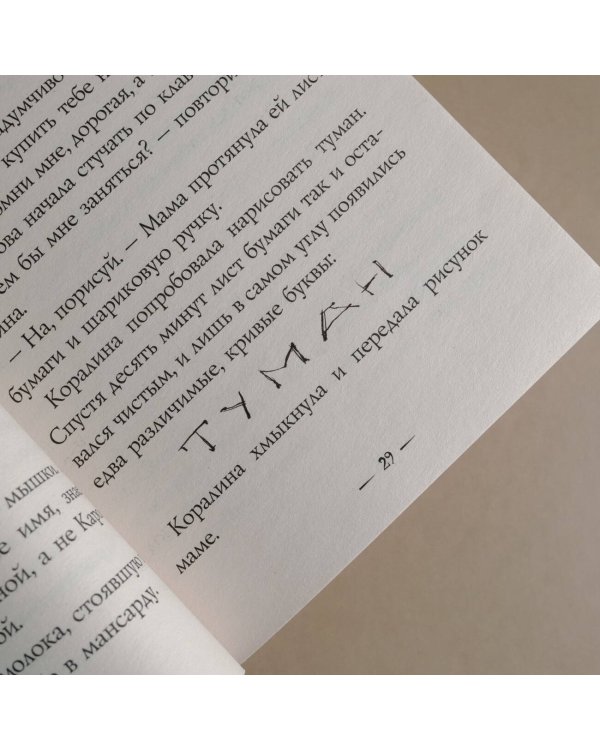 мышки.
имя, зна
ной, а не Кар
ой.
молока, стоявшую
в мансарду.
думчиво
купить тебе
омни мне, дорогая, а
ова начала стучать по клав
ем бы мне заняться? — повтори
ина.
— На, порисуй. — Мама протянула ей лист
бумаги и шариковую ручку.
Коралина попробовала нарисовать туман.
Спустя десять минут лист бумаги так и оста-
вался чистым, и лишь в самом углу появились
едва различимые, кривые буквы:
ТУМАН
Коралина хмыкнула и передала рисунок
маме.
— 29 —